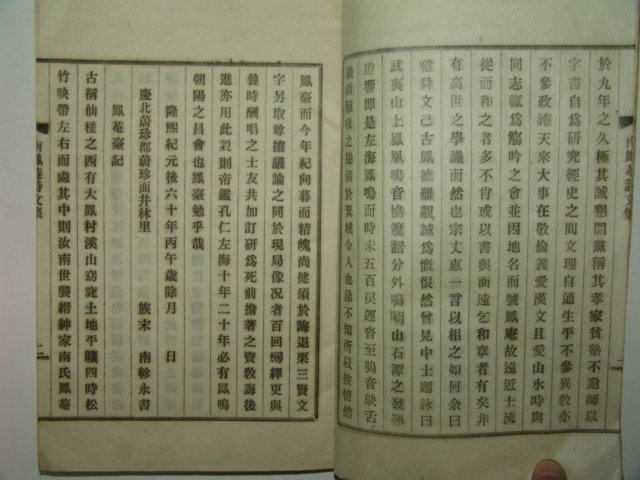 於九年之久極其誠懇閭黨稱其孝家貧塾不邀師以
字書自爲研究經史之間文理自通生平不參異敎亦
不參政娩天來大事在敬倫義愛漢文且愛山水時與
同志輒爲觴吟之會並因地名而號鳳庵故遠近士流
從而和之者多不肯或以書與而遠乞和章者有矣非
有高世之學識而然也宗丈悳一言以相之如何余曰
噫舜文己古鳳德難覩誠爲慨恨然曾見中士題詠曰
武夷山上鳳凰鳴音協簫韶分外鳴陶山石潭之發揮
道響即是左海鳳鳴而時未五百戾運沓至鴃音鴃舌
之徒嘯於箕城令人血涕不知所以後愴然
南鳳庵詩文集
二
鳳臺而今年紀向暮而精魄尚健須於晦退栗三賢文
字另取尊攘議論之同於現局像况者百回燖繹更與
曩時酬唱之士友共加訂研爲死前擔著之資敎誨後
進亦用此諡則帝鑑孔仁左海十年二十年必有鳳鳴
朝陽之昌會也鳳臺勉乎哉
隆熙紀元後六十年丙午歲除月 日
慶北蔚珍郡蔚珍面井林里
族末 南軫永書
鳳菴臺記
古稱仙槎之西有大鳳村溪山窈窕土地平曠四時松
竹映帶左右而處其中則汝南世襲縉紳家南氏鳳菴
南鳳菴詩文集
二